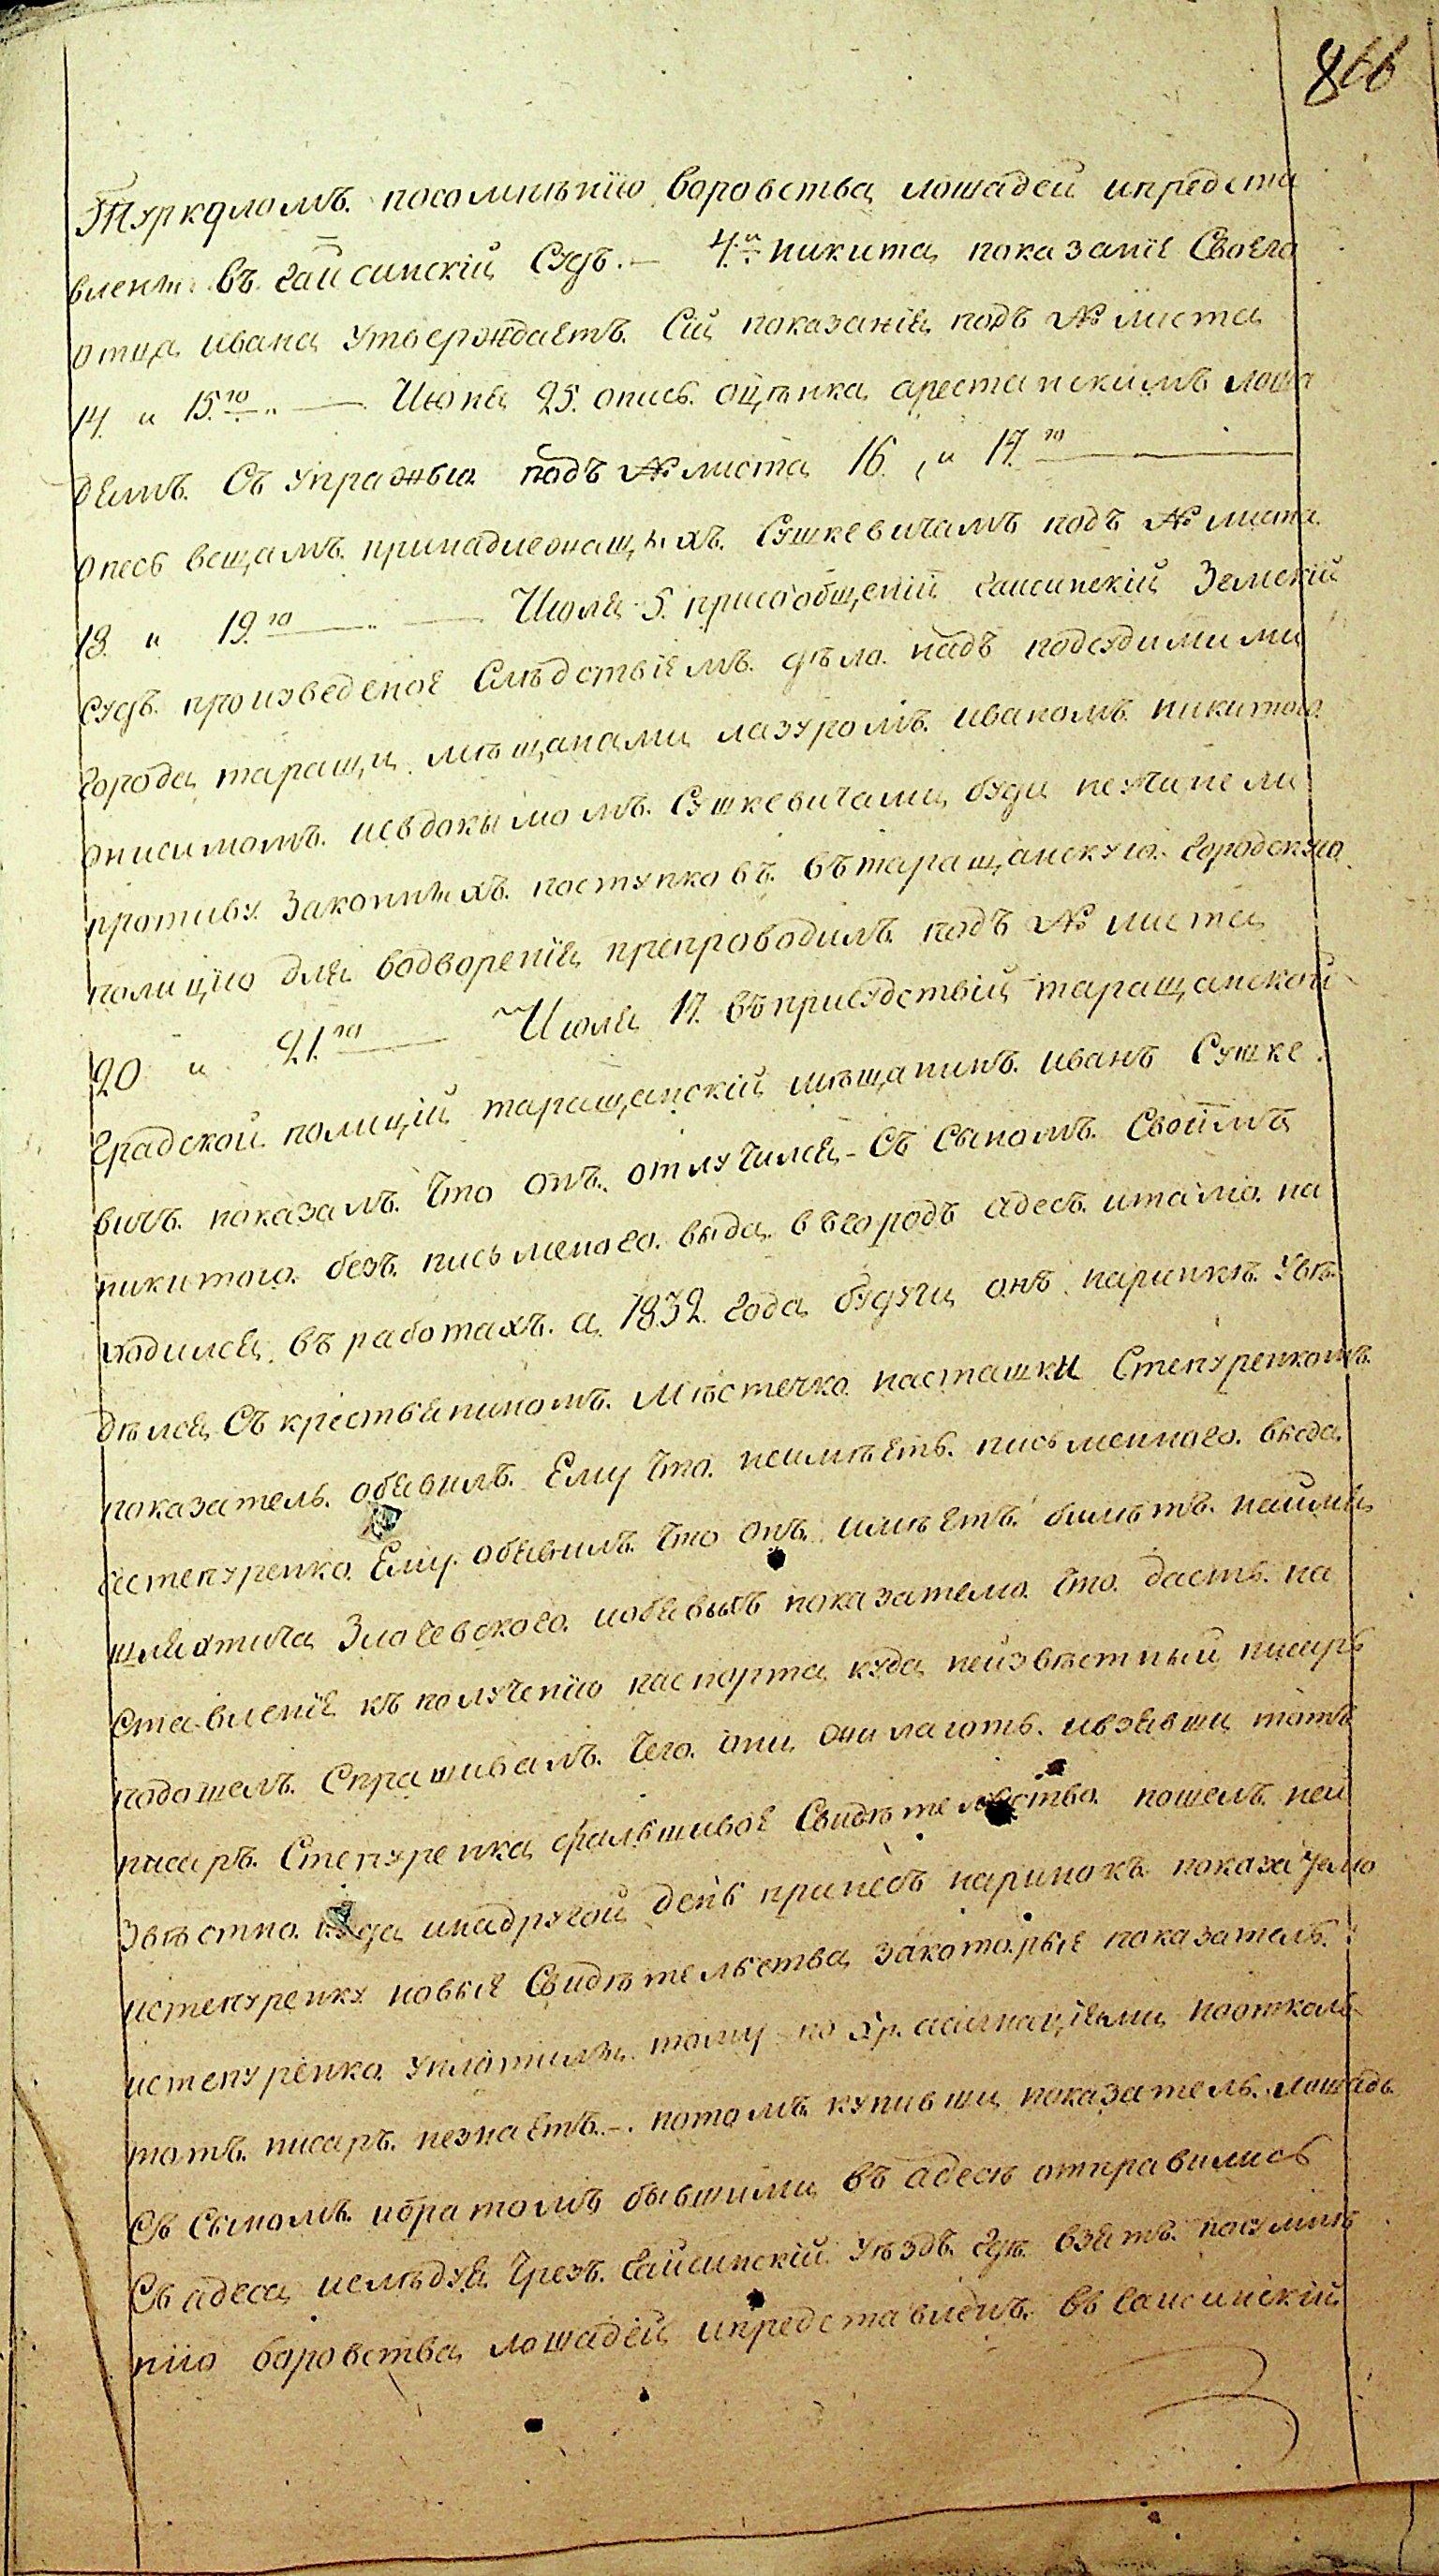 866
Туркаломъ. посомнѣнію воровства лошадей ипредста
вленъ. въ Гайсинскій Судъ. — 4.й Никита показаніе Своего
отца ивана утверждаетъ. Сій показанія подъ № листа
14. и 15.го — Июня 25. опись. оцѣнка арестанскимъ лоша
дямъ. Съ упражью подъ № листа 16. и 17.го
опесь вещамъ. принадлежащыхъ. Сушкевичамъ подъ № листа.
18. и 19.го — Июля 5. присообщеній Гаисинскій Земскій
Судъ. произведеное Слѣдствіемъ. дѣло. надъ подсудимими
города таращи мѣщанами лазуромъ. иваномъ. никитою.
онисимомъ. иевдокымомъ. Сушкевичами, буди неучинели
противу. Законныхъ. поступковъ. вътаращанскую. городскую.
полицію для водворенія препроводилъ. подъ № листа
20 и 21.го — Июля 17. въприсудствій таращанской
градской. полиціи таращанскій мѣщанинъ. иванъ Сушке.
вичъ. показалъ. что онъ. отлучился Съ Сыномъ. Своимъ
никитою. безъ. письменого. выда. въгородъ адесъ. итамо. на
ходился, въ работахъ. а 1832. года будучи онъ нарынкѣ. увѣ.
дѣлся, Съ крестьяниномъ. Мѣстечко насташки Степуренкомъ.
показатель. обявилъ. Ему что. неимѣетъ. письменного. выда.
астепуренко. Ему. обявилъ. что онъ. имѣетъ. бимѣтъ. наимя
шляхтича Злочевского. иобявылъ показателю. что. дастъ. на
Ставленіе къ получению паспорта, куда неизвѣстный писаръ
подошелъ. Спрашивалъ. чего. они. ожилаютъ. ивзявши тотъ
писаръ. Степуренка фальшивое Свидѣтельство. пошелъ. неи
звѣстно. куда инадругой день принесъ нарынокъ показателю
истепуренку новые Свидѣтельства, закоторые показатель.
истепуренко. уплатилы. тому по хр. асигнаціями, ноотколь
тотъ. писаръ. незнаетъ. — потомъ купивши показатель. лошадь
Съ Сыномъ. ибратомъ бывшими въ адесѣ отправились
Съ адеса, ислѣдуя. чрезъ. Гайсинскій. уѣздъ. гдѣ. взятъ. посумнѣ
нію баровства, лошадей ипредставленъ. въ Гаисинскій